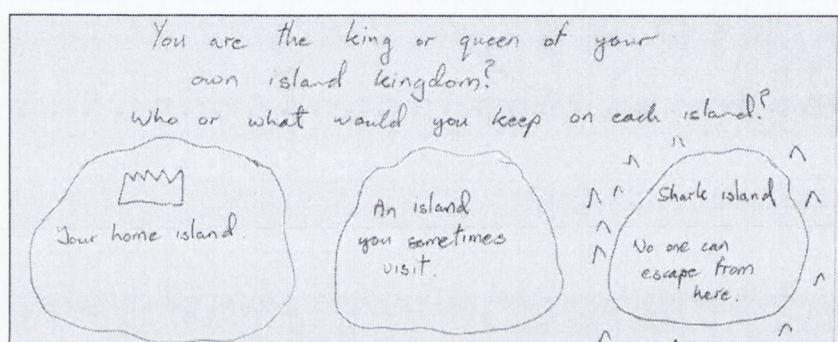 You are the king or queen of your
own island kingdom?
Who or what would you keep on each island?
Your home island.
An island
you sometimes
visit.
Shark island
No one can
escape from
here.